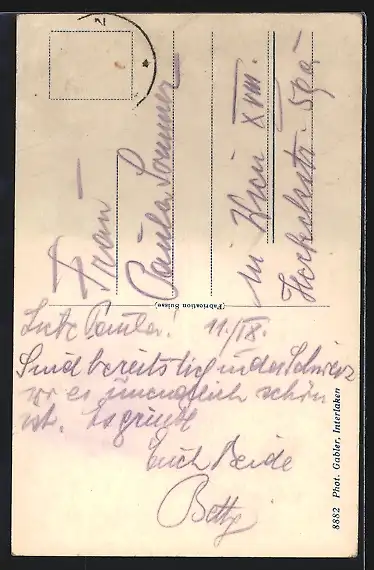 Frau
Paula Sommer
in Wien XVIII.
Hockestr. 59a
(Fabrication Suisse)
Liebe Paula! 11./IX.
Sind bereits tief in der Schweiz
wo es unendlich schön
ist. Es grüßt
Euch Beide
Betty
8882 Phot. Gabler, Interlaken